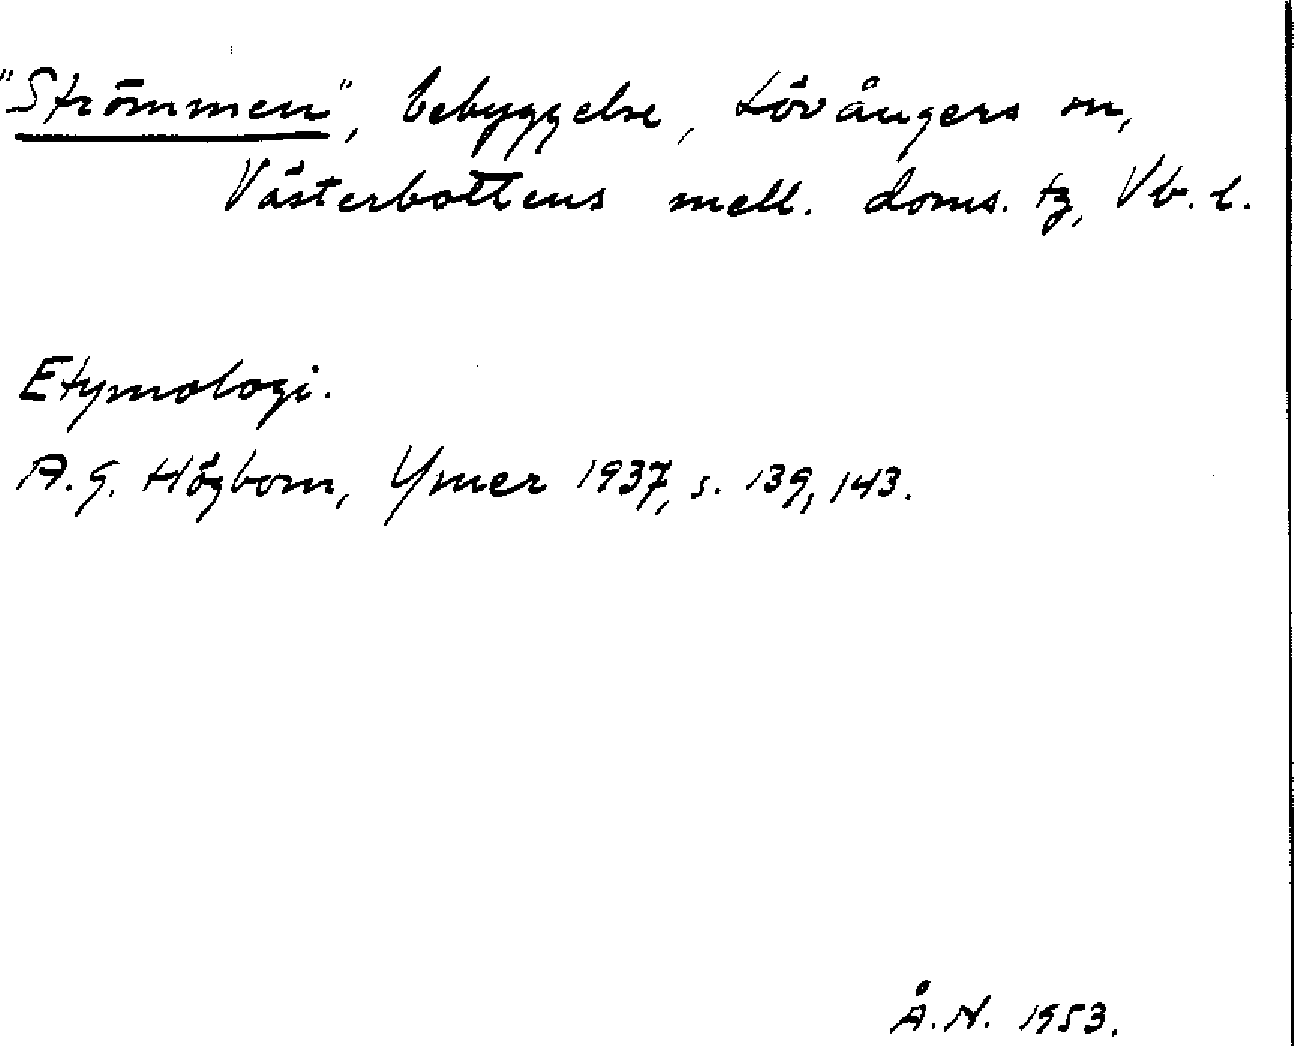 "Strömmen", bebyggelse, Lövångers sn,
Västerbottens mell. doms. tg, Vb. l.
Etymologi.
A. G. Högbom, Ymer 1937, s. 139, 143.
Å. N. 1953.